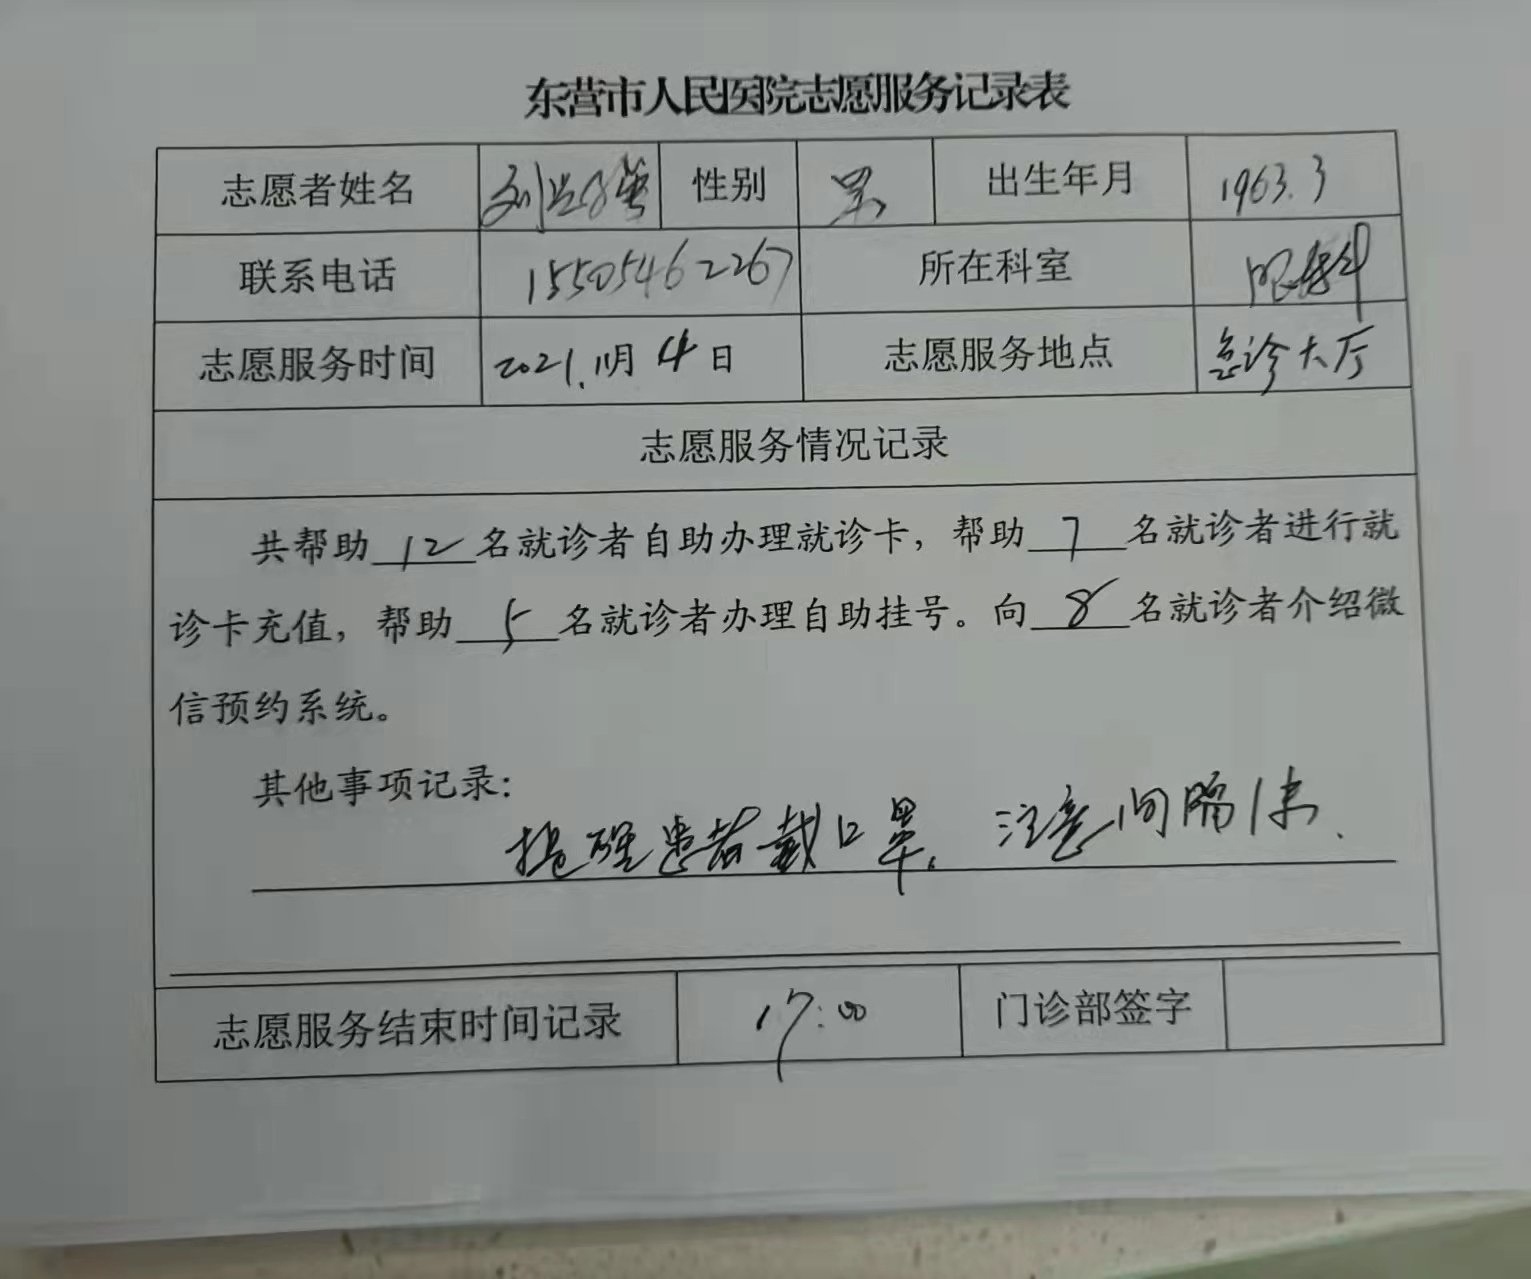 东营市人民医院志愿服务记录表
志愿者姓名 刘 性别 男 出生年月 1963.3
联系电话 15505462267 所在科室 眼科
志愿服务时间 2021.11月4日 志愿服务地点 急诊大厅
志愿服务情况记录
共帮助12名就诊者自助办理就诊卡，帮助7名就诊者进行就
诊卡充值，帮助5名就诊者办理自助挂号。向8名就诊者介绍微
信预约系统。
其他事项记录：
提醒患者戴口罩、注意间隔1米、
志愿服务结束时间记录 17:00 门诊部签字